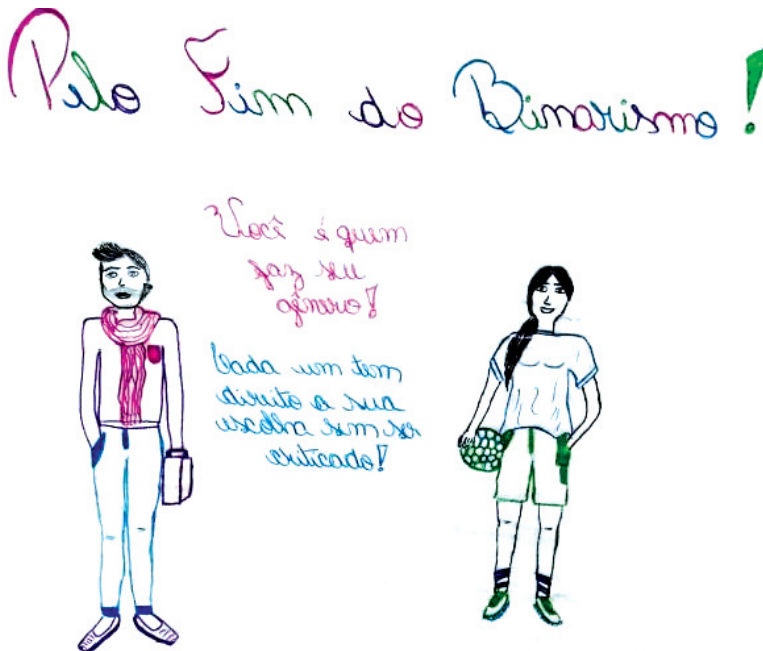 Pelo Fim do Binarismo!
Você é quem
faz seu
gênero!
Cada um tem
direito a sua
escolha sem ser
criticado!